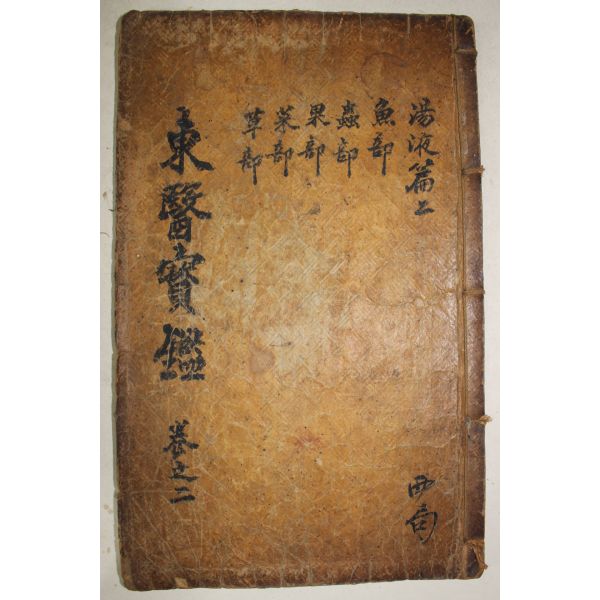 湯液篇二
魚部
蟲部
果部
菜部
草部
東醫寶鑑
卷之二